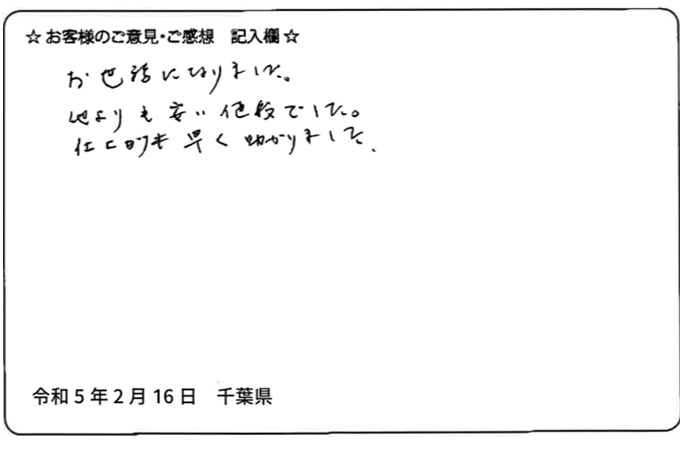 ☆お客様のご意見・ご感想 記入欄☆
お世話になりました。
他よりも安い値段でした。
仕上りも早く助かりました.
令和5年2月16日 千葉県